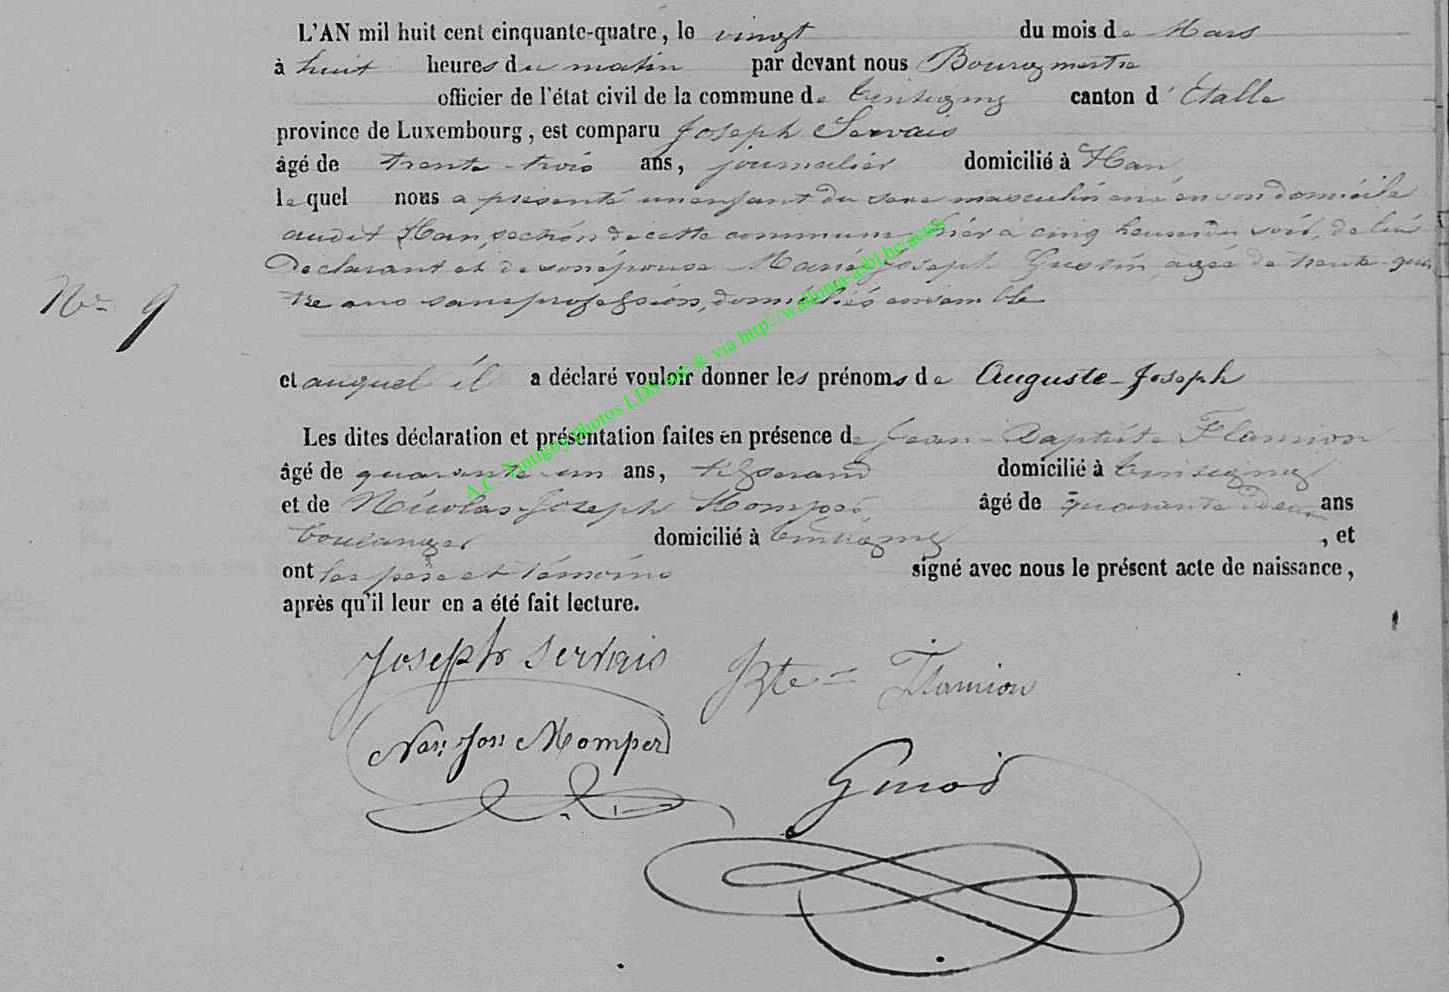 L'AN mil huit cent cinquante-quatre, le vingt du mois de Mars
à huit heures du matin par devant nous Bourgmestre
officier de l'état civil de la commune de Tintigny canton d'Etalle
province de Luxembourg, est comparu Joseph Servais
âgé de trente-trois ans, journalier domicilié à Han,
lequel nous a présenté un enfant du sexe masculin né en son domicile
audit Han, section de cette commune hier à cinq heures du soir, de lui
Déclarant et de son épouse Marie Joseph Gustin, agée de trente-qua
tre ans sans profession, domiciliés ensemble
Nro 9
et auquel il a déclaré vouloir donner les prénoms de Auguste-Joseph
Les dites déclaration et présentation faites en présence de Jean-Baptiste Flamion
âgé de quarante-un ans, tisserand domicilié à Tintigny
et de Nicolas-Joseph Momper âgé de quarante deux ans
boulanger domicilié à Tintigny, et
ont les père et témoins signé avec nous le présent acte de naissance,
après qu'il leur en a été fait lecture.
Joseph Servais Bte = Flamion
Jos: Momper
A.C. Tintigny photos LDS ® via http://wallonia-asbl.be/actes